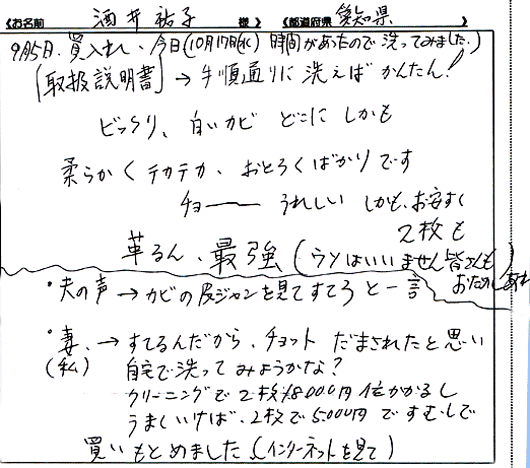 《お名前 酒井祐子 様》《都道府県 愛知県
9月5日、買入れ、今日(10月17日(水)時間があったので洗ってみました。)
[取扱説明書]→手順通りに洗えばかんたん!
ビックリ、白いカビ どこに しかも
柔らかくテカテカ、おどろくばかりです
チョーー うれしい しかも、お安く
2枚も
革るん、最強(ウソはいいません皆さんも
おためしあれ
・夫の声→カビの皮ジャンを見てすてろと一言
・妻、→すてるんだから、チョット だまされたと思い
(私) 自宅で洗ってみようかな?
クリーニングで2枚18000円位かかるし
うまくいけば、2枚で5000円ですむしで
買いもとめました(インターネットを見て)